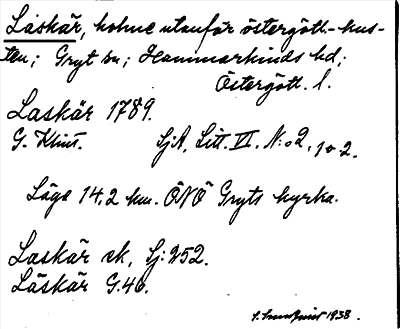 Låskär, holme utanför östergötl.-kus-
ten; Gryt sn; Hammarkinds hd;
Östergötl. l.
Laskär 1789.
G. Klint. SjA, Litt. VI. N:o 2, 1 o 2.
Läge 14,2 km. ÖNÖ Gryts kyrka.
Laskär ek, Sj: 252.
Låskär G.46.
1938.